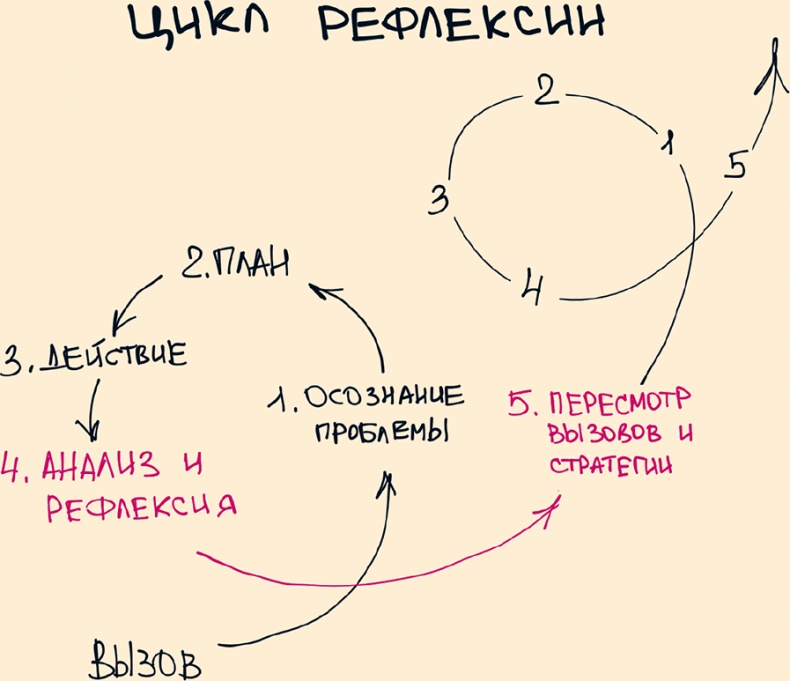 ЦИКЛ РЕФЛЕКСИИ
2
1
5
3
4
2. ПЛАН
3. ДЕЙСТВИЕ
1. ОСОЗНАНИЕ
ПРОБЛЕМЫ
5. ПЕРЕСМОТР
ВЫЗОВОВ И
СТРАТЕГИИ
4. АНАЛИЗ И
РЕФЛЕКСИЯ
ВЫЗОВ